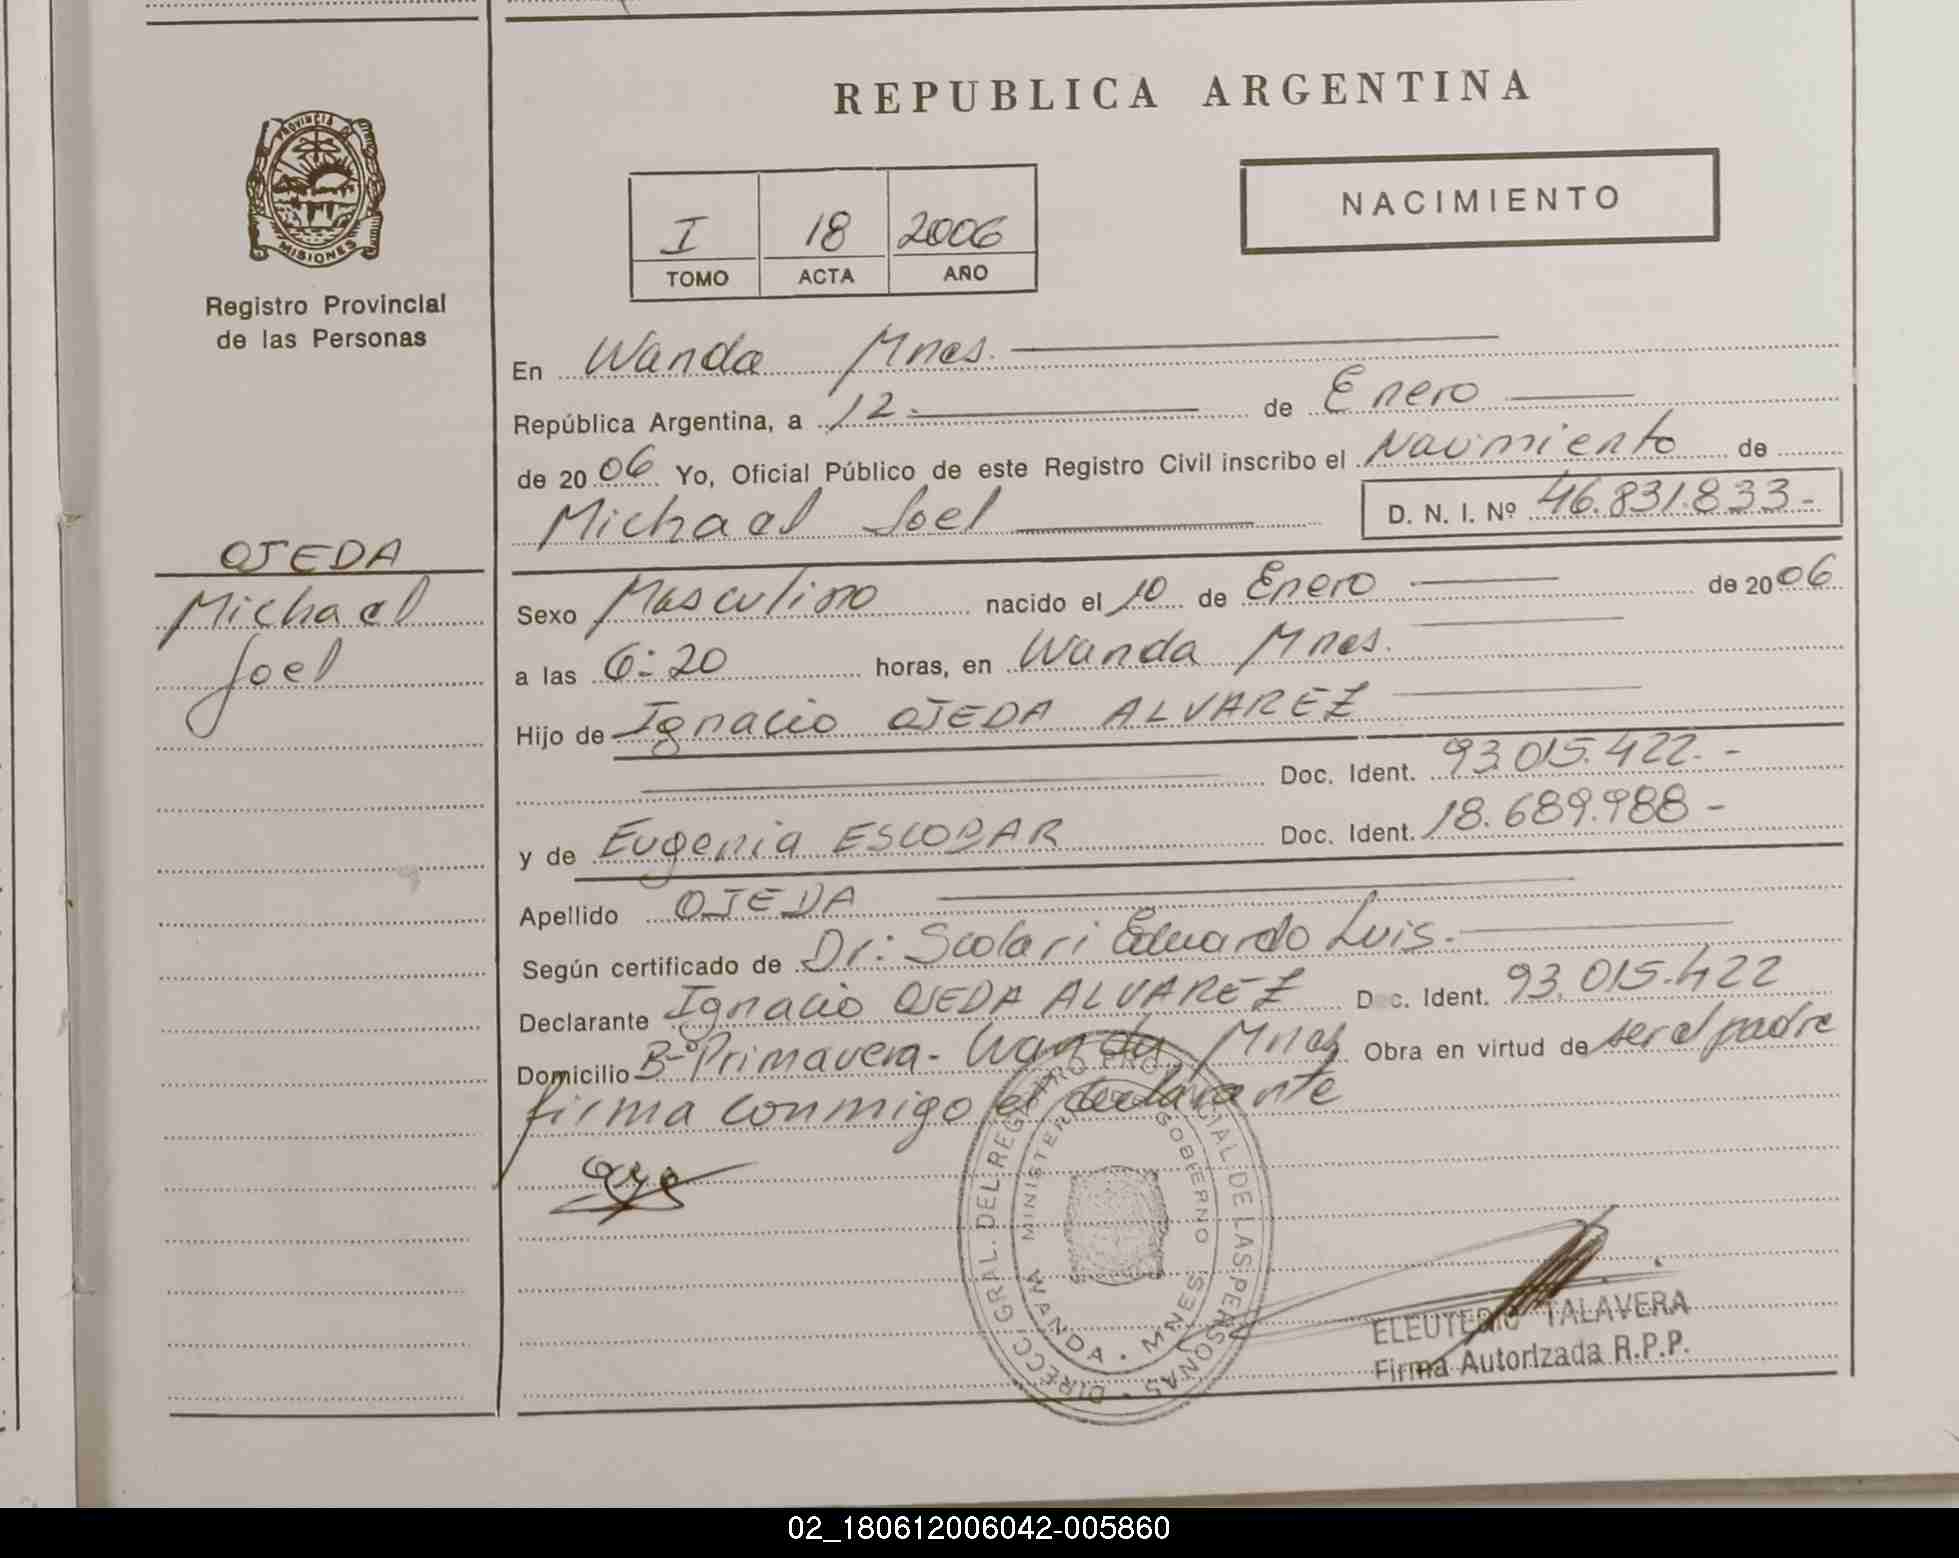 REPUBLICA ARGENTINA
PROVINCIA DE
MISIONES
Registro Provincial
de las Personas
I 18 2006
TOMO ACTA AÑO
NACIMIENTO
En Wanda Mnes.
República Argentina, a 12 de Enero
de 2006 Yo, Oficial Público de este Registro Civil inscribo el Nacimiento de
Michael Joel D. N. I. Nº 46.831.833-
OJEDA
Michael
Joel
Sexo Masculino nacido el 10 de Enero de 2006
a las 6:20 horas, en Wanda Mnes.
Hijo de Ignacio OJEDA ALVAREZ
Doc. Ident. 93.015.422.-
y de Eugenia ESCOBAR Doc. Ident. 18.689.988-
Apellido OJEDA
Según certificado de Dr: Scolari Eduardo Luis.
Declarante Ignacio OJEDA ALVAREZ D c. Ident. 93.015.422
Domicilio Bº Primavera- Wanda Mnes Obra en virtud de ser el padre
firma conmigo el declarante
DIRECC. GRAL. DEL REGISTRO PROVINCIAL DE LAS PERSONAS
MINISTERIO GOBIERNO
WANDA · MNES
ELEUTERIO TALAVERA
Firma Autorizada R.P.P.
02_180612006042-005860